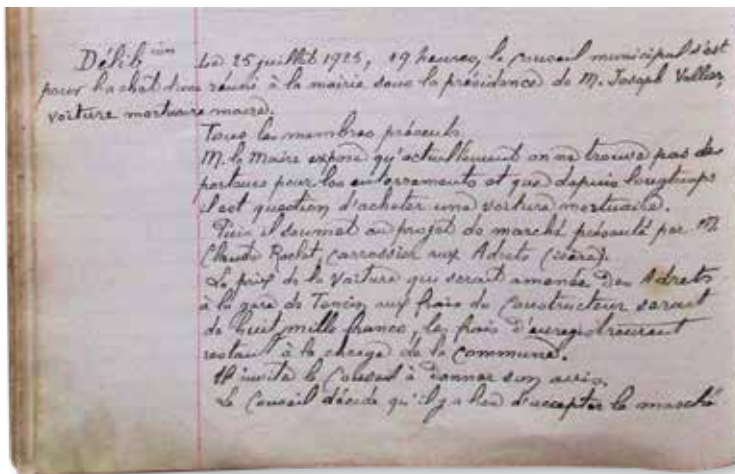 Délib ion
pour l'achat d'une
voiture mortuaire
Le 25 juillet 1925, 19 heures, le Conseil municipal s'est
réuni à la mairie sous la présidence de M. Joseph Vallier,
maire.
Tous les membres présents.
M. le Maire expose qu'actuellement on ne trouve pas des
porteurs pour les enterrements et que depuis longtemps
il est question d'acheter une voiture mortuaire.
Puis il soumet un projet de marché présenté par M.
Claude Rochet, carrossier aux Adrets (isère).
Le prix de la voiture qui serait amenée des Adrets
à la gare de Tencin aux frais du Constructeur serait
de huit mille francs, les frais d'enregistrement
restant à la charge de la Commune.
Il invite le Conseil à donner son avis.
Le Conseil décide qu'il y a lieu d'accepter le marché